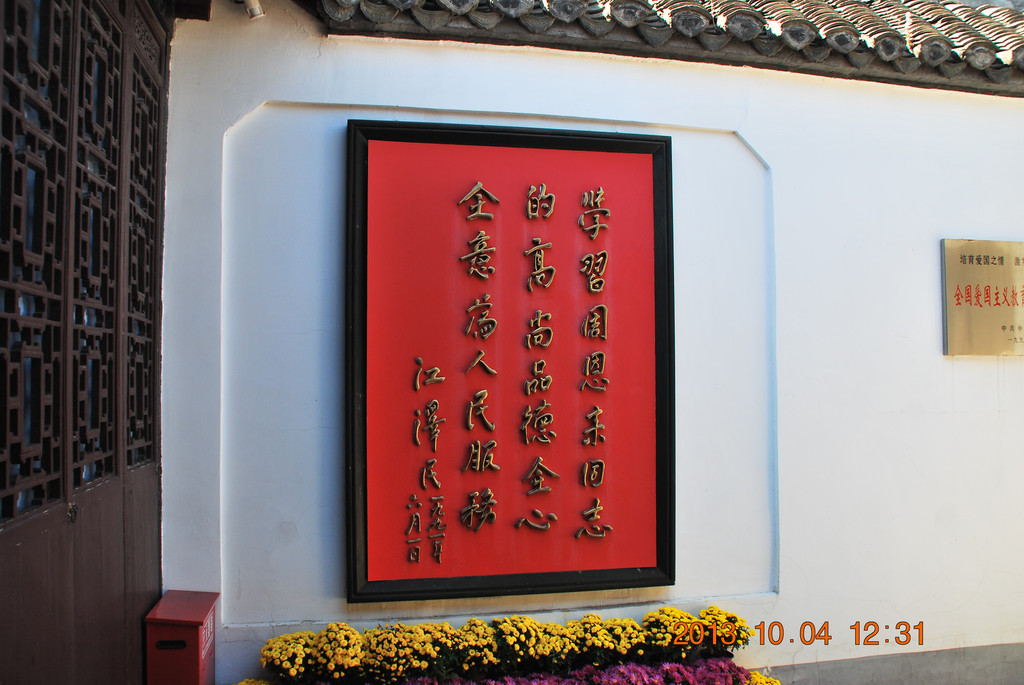 學習周恩来同志
的高尚品德全心
全意為人民服務
江澤民
一九九一年
六月一日
培育爱国之情
全国爱国主义教育
中共中
一九九
2013.10.04 12:31